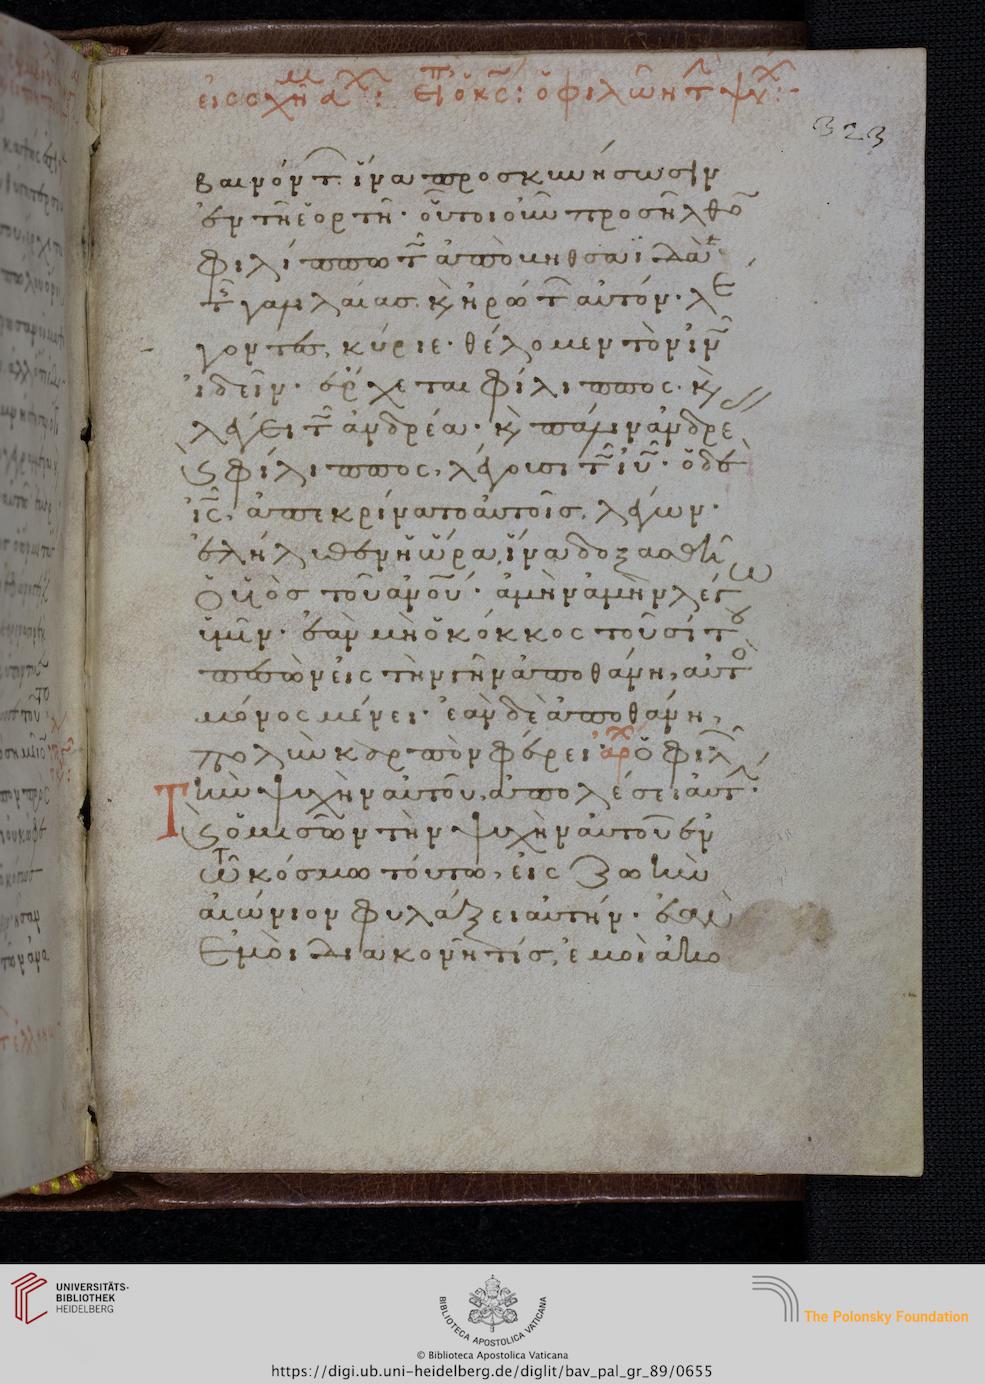 βαινόντ. ἵνα προσκυνήσωσιν
ἐν τῆ ἑορτῆ· οὗτοι οὖν προσῆλθο
φιλίππω τ ἀπὸ βηθσαϊδὰ
τ γαλιλαίασ. κ ἠρώτ αὐτόν· λε
γοντες, κύριε· θέλομεν τὸν ιν
ἰδεῖν· ἔρχεται φίλιππος. κ
λέγει τ ἀνδρέα· κ πάλιν ἀνδρέ
κ φίλιππος, λέγουσι τ ιυ· ὁ δὲ
ις, ἀπεκρίνατο αὐτοῖσ, λέγων·
ἐλήλυθεν ἡ ὥρα, ἵνα δοξασθῆ
ὁ υἱὸσ τοῦ ανου· ἀμὴν ἀμὴν λέγω
ὑμῖν· ἐὰν μὴ ὁ κόκκος τοῦ σίτου
πεσὼν εἰς τὴν γῆν ἀποθάνη, αὐτὸ
μόνος μένει· ἐὰν δὲ ἀποθάνη,
πολὺν καρπὸν φέρει ἀρχ ὁ φιλ
Τὴν ψυχὴν αὐτοῦ, ἀπολέσει αὐτ·
κ ὁ μισῶν τὴν ψυχὴν αὐτοῦ ἐν
τῶ κόσμω τούτω, εἰς ζωὴν
αἰώνιον φυλάξει αὐτήν· ἐὰν
Ἐμοὶ διακονῆ τίσ, ἐμοὶ ἀκο
323
UNIVERSITÄTS-
BIBLIOTHEK
HEIDELBERG
BIBLIOTECA APOSTOLICA VATICANA
The Polonsky Foundation
© Biblioteca Apostolica Vaticana
https://digi.ub.uni-heidelberg.de/diglit/bav_pal_gr_89/0655